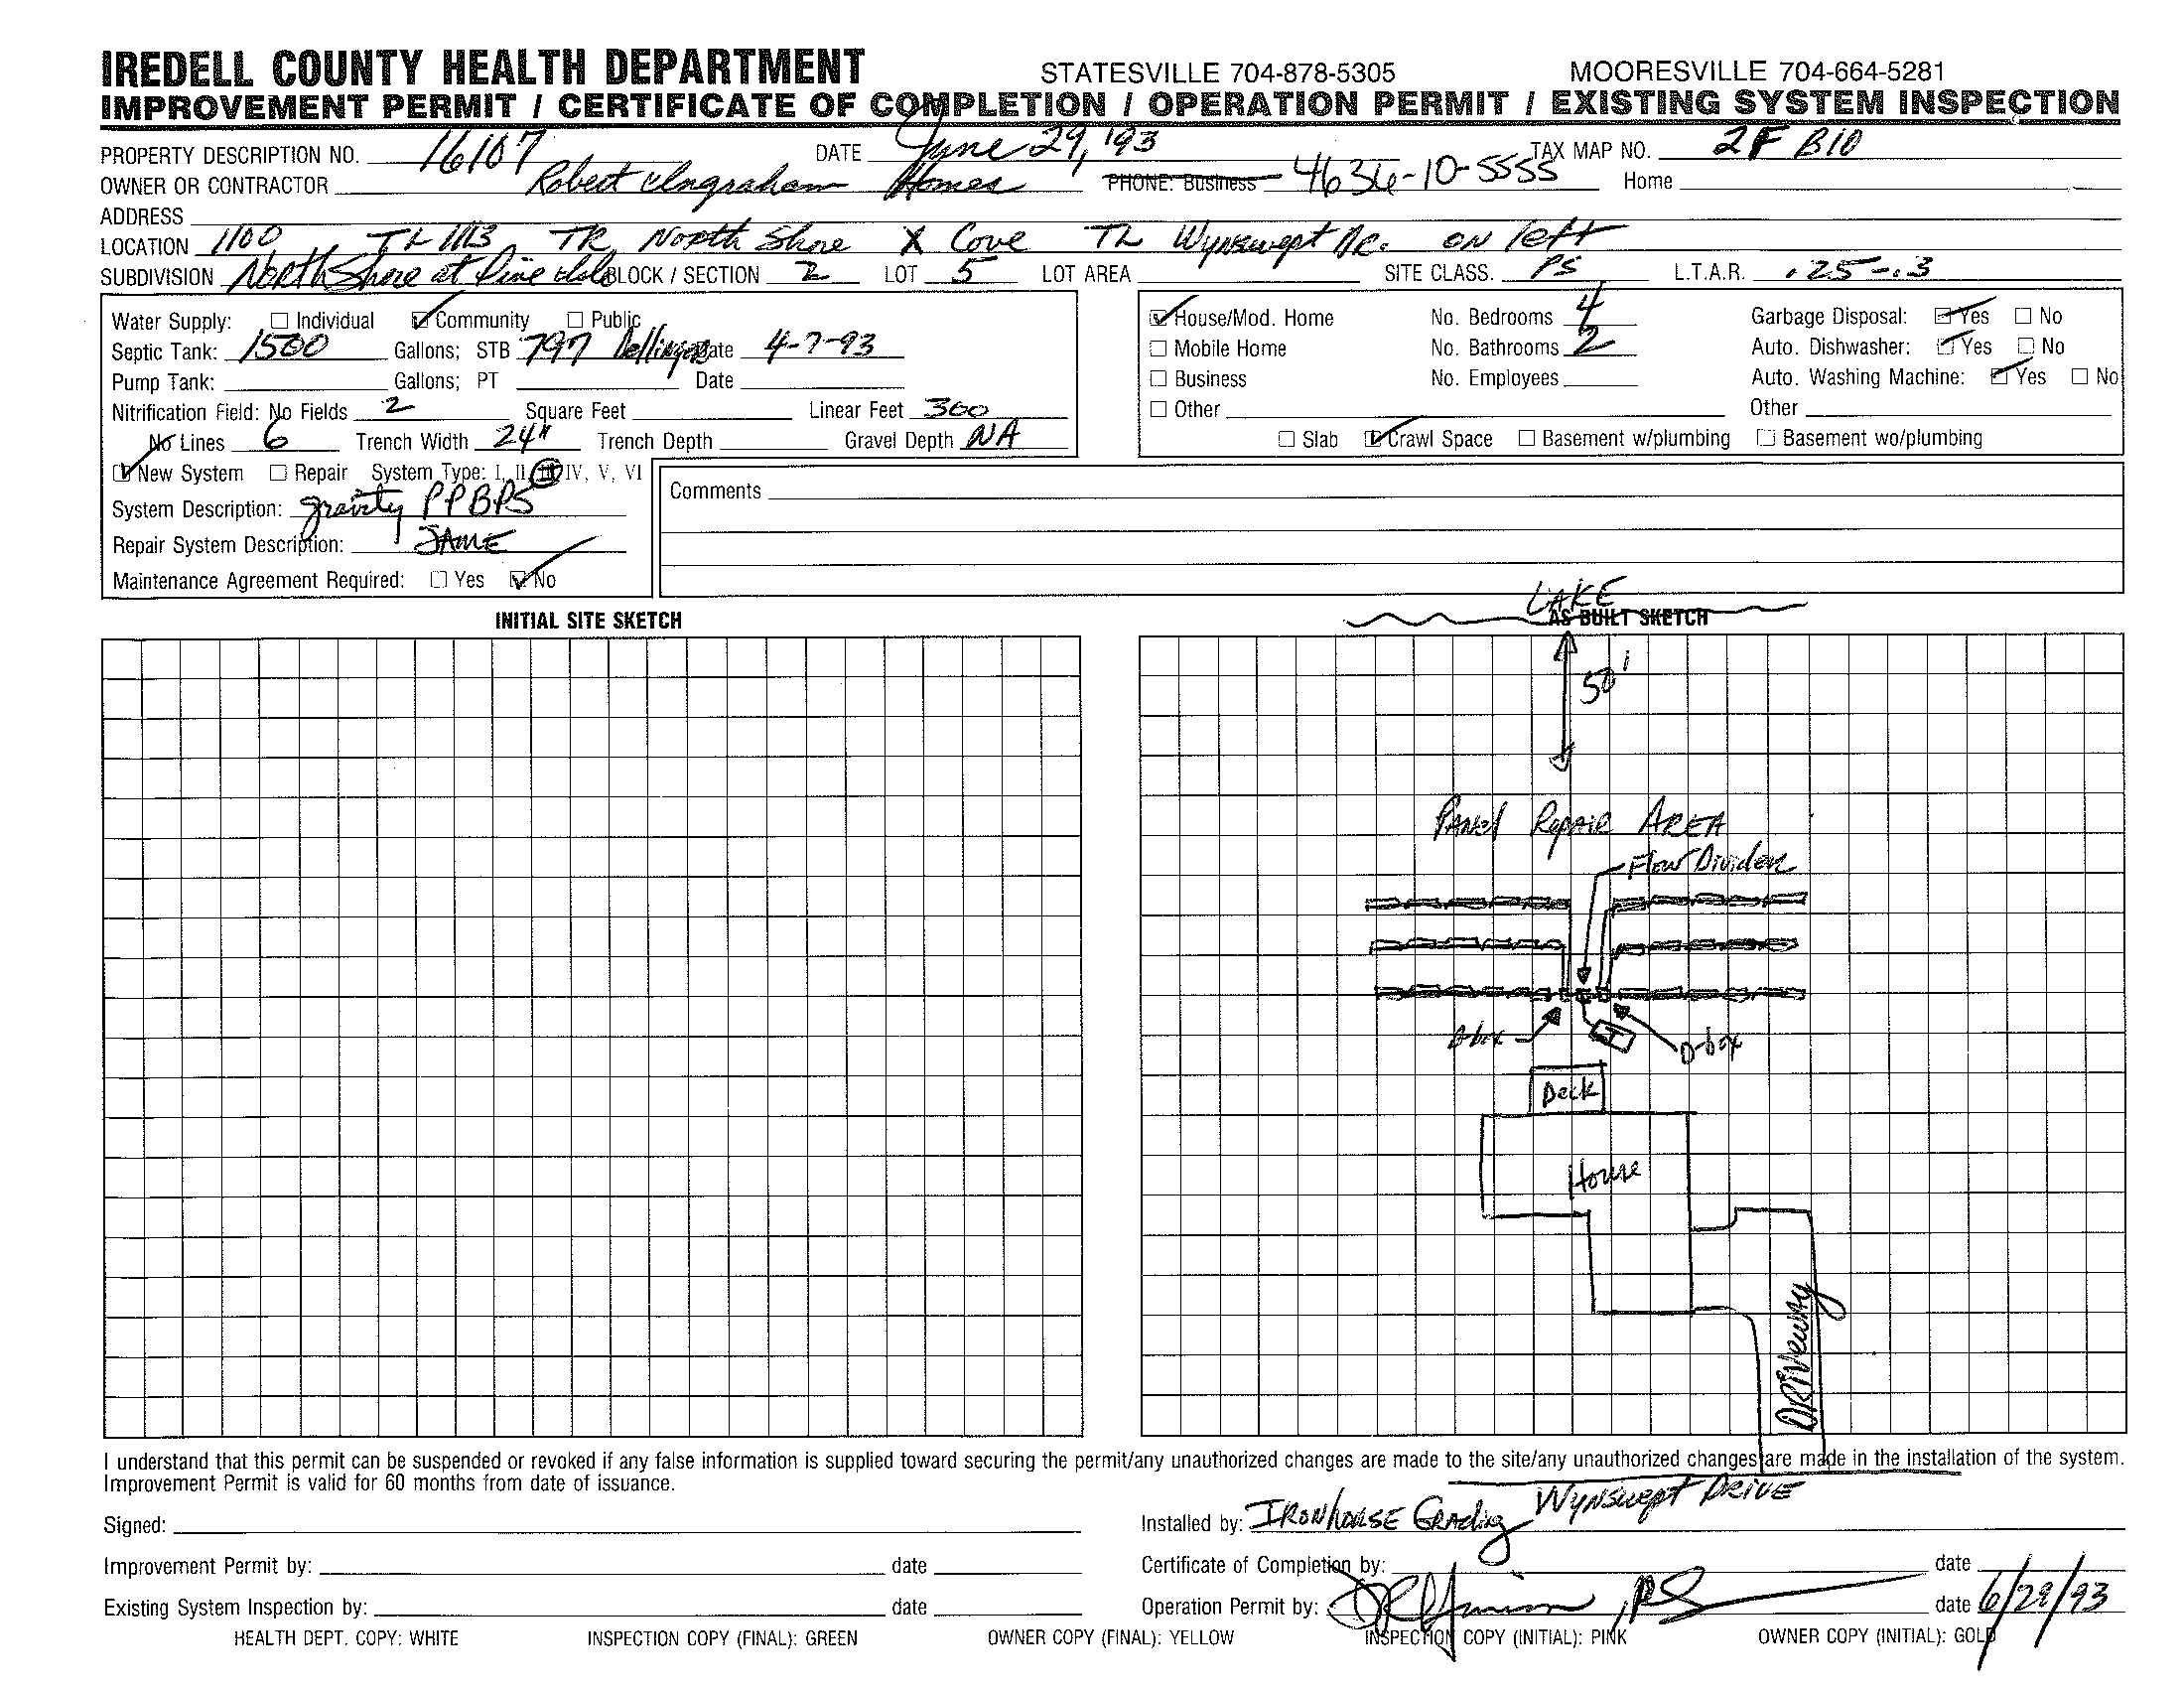 IREDELL COUNTY HEALTH DEPARTMENT STATESVILLE 704-878-5305 MOORESVILLE 704-664-5281
IMPROVEMENT PERMIT / CERTIFICATE OF COMPLETION / OPERATION PERMIT / EXISTING SYSTEM INSPECTION
PROPERTY DESCRIPTION NO. 16107 DATE June 29, '93 TAX MAP NO. 2F B10
OWNER OR CONTRACTOR Robert Ingraham Homes PHONE: Business 4636-10-5555 Home
ADDRESS
LOCATION 1100 TL 1113 TR North Shore X Cove TL Wynswept Dr. on left
SUBDIVISION North Shore at Pine Isle BLOCK / SECTION 2 LOT 5 LOT AREA SITE CLASS. PS L.T.A.R. .25-.3
Water Supply: Individual Community Public
Septic Tank: 1500 Gallons; STB 797 Dellinger Date 4-7-93
Pump Tank: Gallons; PT Date
Nitrification Field: No Fields 2 Square Feet Linear Feet 300
No Lines 6 Trench Width 24" Trench Depth Gravel Depth NA
New System Repair System Type: I, II, III, IV, V, VI
System Description: gravity PPBPS
Repair System Description: SAME
Maintenance Agreement Required: Yes No
House/Mod. Home No. Bedrooms 4 Garbage Disposal: Yes No
Mobile Home No. Bathrooms 2 Auto. Dishwasher: Yes No
Business No. Employees Auto. Washing Machine: Yes No
Other Other
Slab Crawl Space Basement w/plumbing Basement wo/plumbing
Comments
INITIAL SITE SKETCH
LAKE
AS BUILT SKETCH
50'
Panel Repair AREA
Flow Divider
D-box
D-box
Deck
House
DRIVEWAY
I understand that this permit can be suspended or revoked if any false information is supplied toward securing the permit/any unauthorized changes are made to the site/any unauthorized changes are made in the installation of the system.
Improvement Permit is valid for 60 months from date of issuance.
Wynswept DRIVE
Signed: Installed by: IRONHORSE Grading
Improvement Permit by: date Certificate of Completion by: date
Existing System Inspection by: date Operation Permit by: , RS date 6/29/93
HEALTH DEPT. COPY: WHITE INSPECTION COPY (FINAL): GREEN OWNER COPY (FINAL): YELLOW INSPECTION COPY (INITIAL): PINK OWNER COPY (INITIAL): GOLD